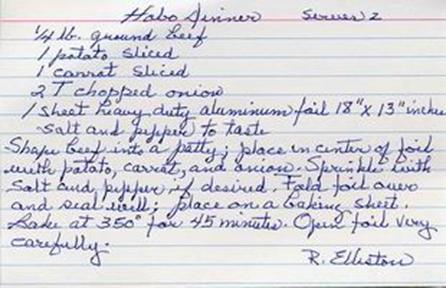 Hobo Dinner Serves 2
1/4 lb. ground beef
1 potato sliced
1 carrot sliced
2 T chopped onion
1 sheet heavy duty aluminum foil 18" x 13" inches
salt and pepper to taste
Shape beef into a patty; place in center of foil
with potato, carrot, and onion. Sprinkle with
salt and pepper if desired. Fold foil over
and seal well; place on a baking sheet.
Bake at 350° for 45 minutes. Open foil very
carefully.
R. Elliston